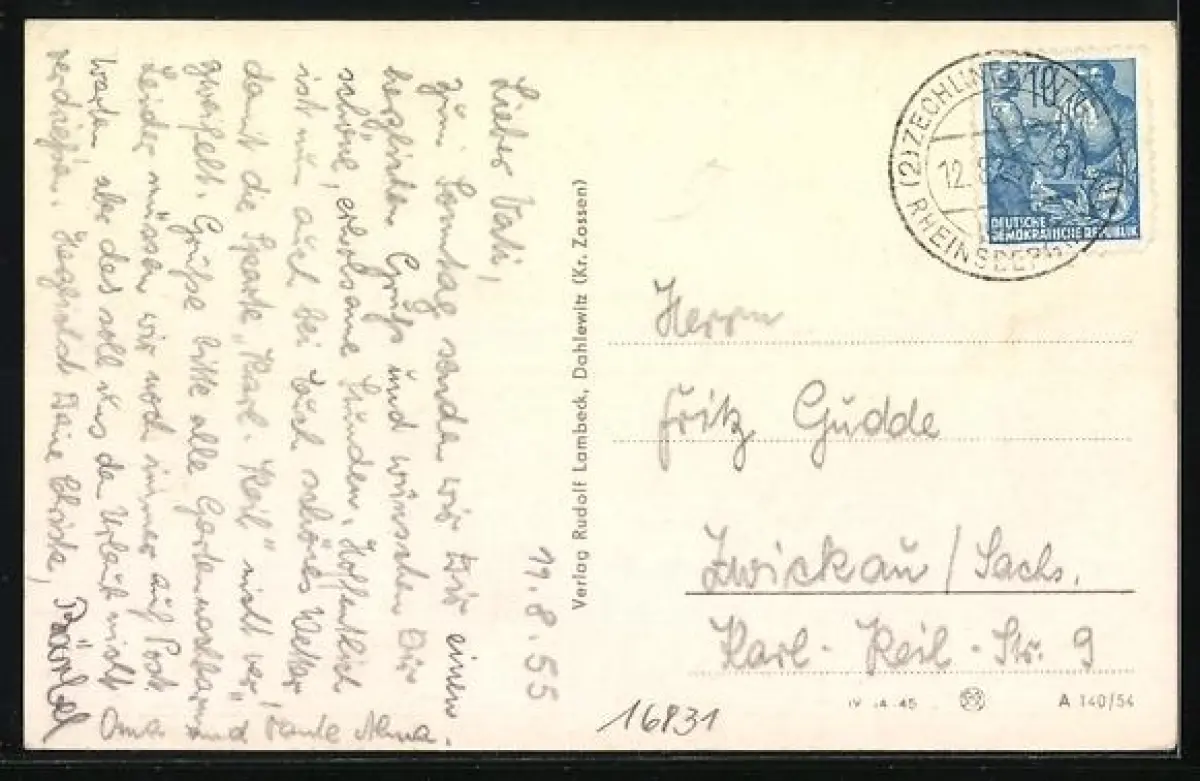 Lieber Vati,
zum Sonntag senden wir Dir einen
herzlichen Gruß und wünschen Dir
schöne, erholsame Stunden. Hoffentlich
ist nun auch bei Euch schönes Wetter,
damit die Sparte "Karl-Keil" nicht ver-
zweifelt. Grüße bitte alle Gartennachbarn und Tante Alma.
Leider müssen wir noch immer auf Post
warten, aber das soll uns den Urlaub nicht
verdrießen. Herzlichst Deine Christa,
Oma
19.8.55
Verlag Rudolf Lambeck, Dahlewitz (Kr. Zossen)
(2) ZECHLINERHÜTTE
12.8.
RHEINSBERG
10
DEUTSCHE
DEMOKRATISCHE REPUBLIK
Herrn
Fritz Gudde
Zwickau/Sachs.
Karl-Keil-Str. 9
IV 14 45
A 140/54
16831